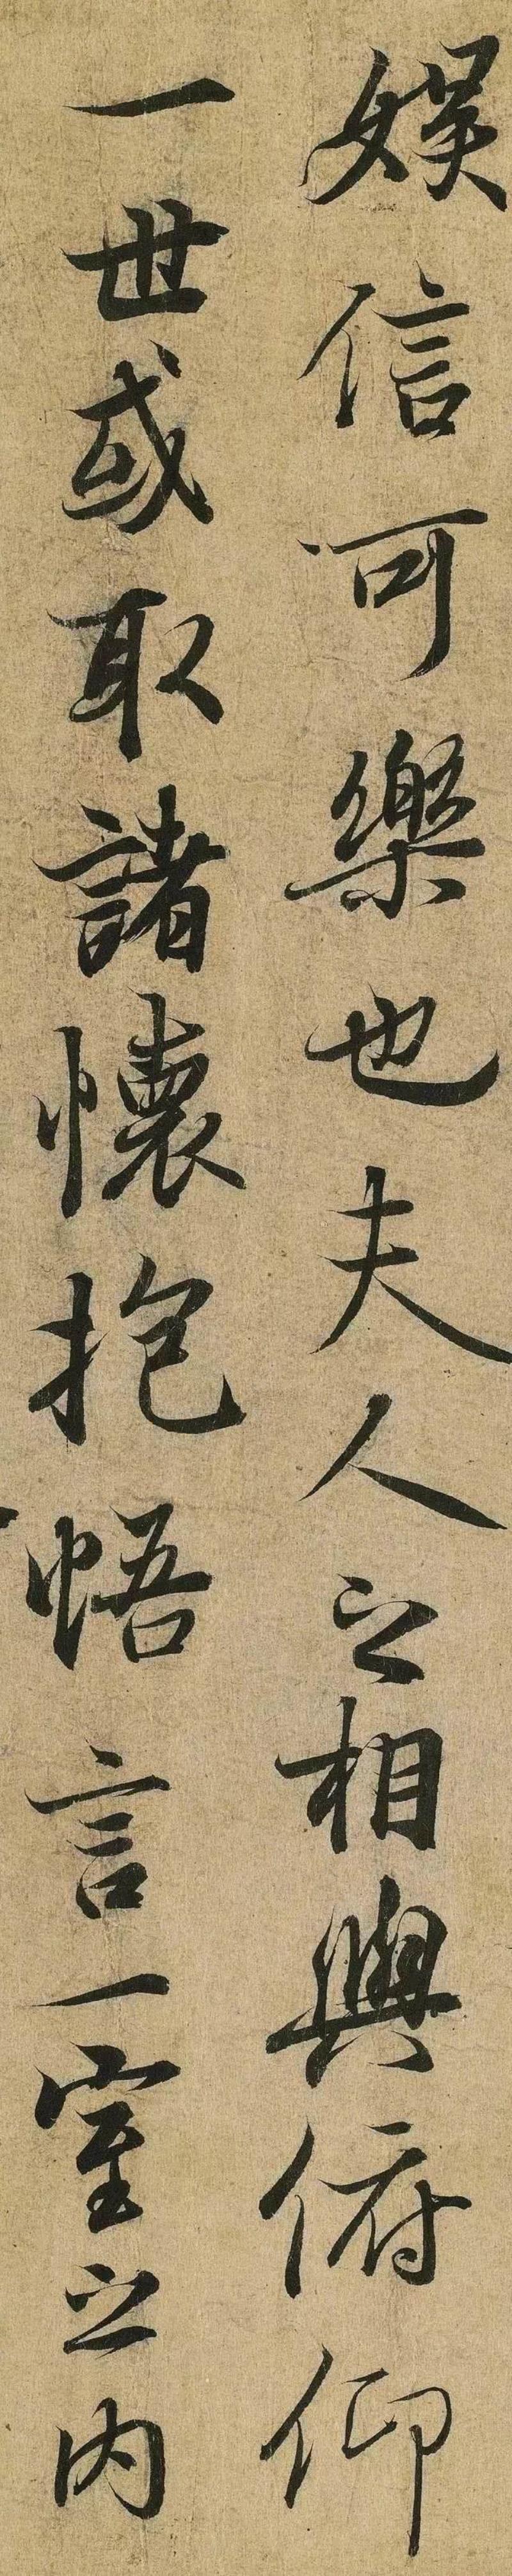 娱信可樂也夫人之相與俯仰
一世或取諸懷抱悟言一室之内